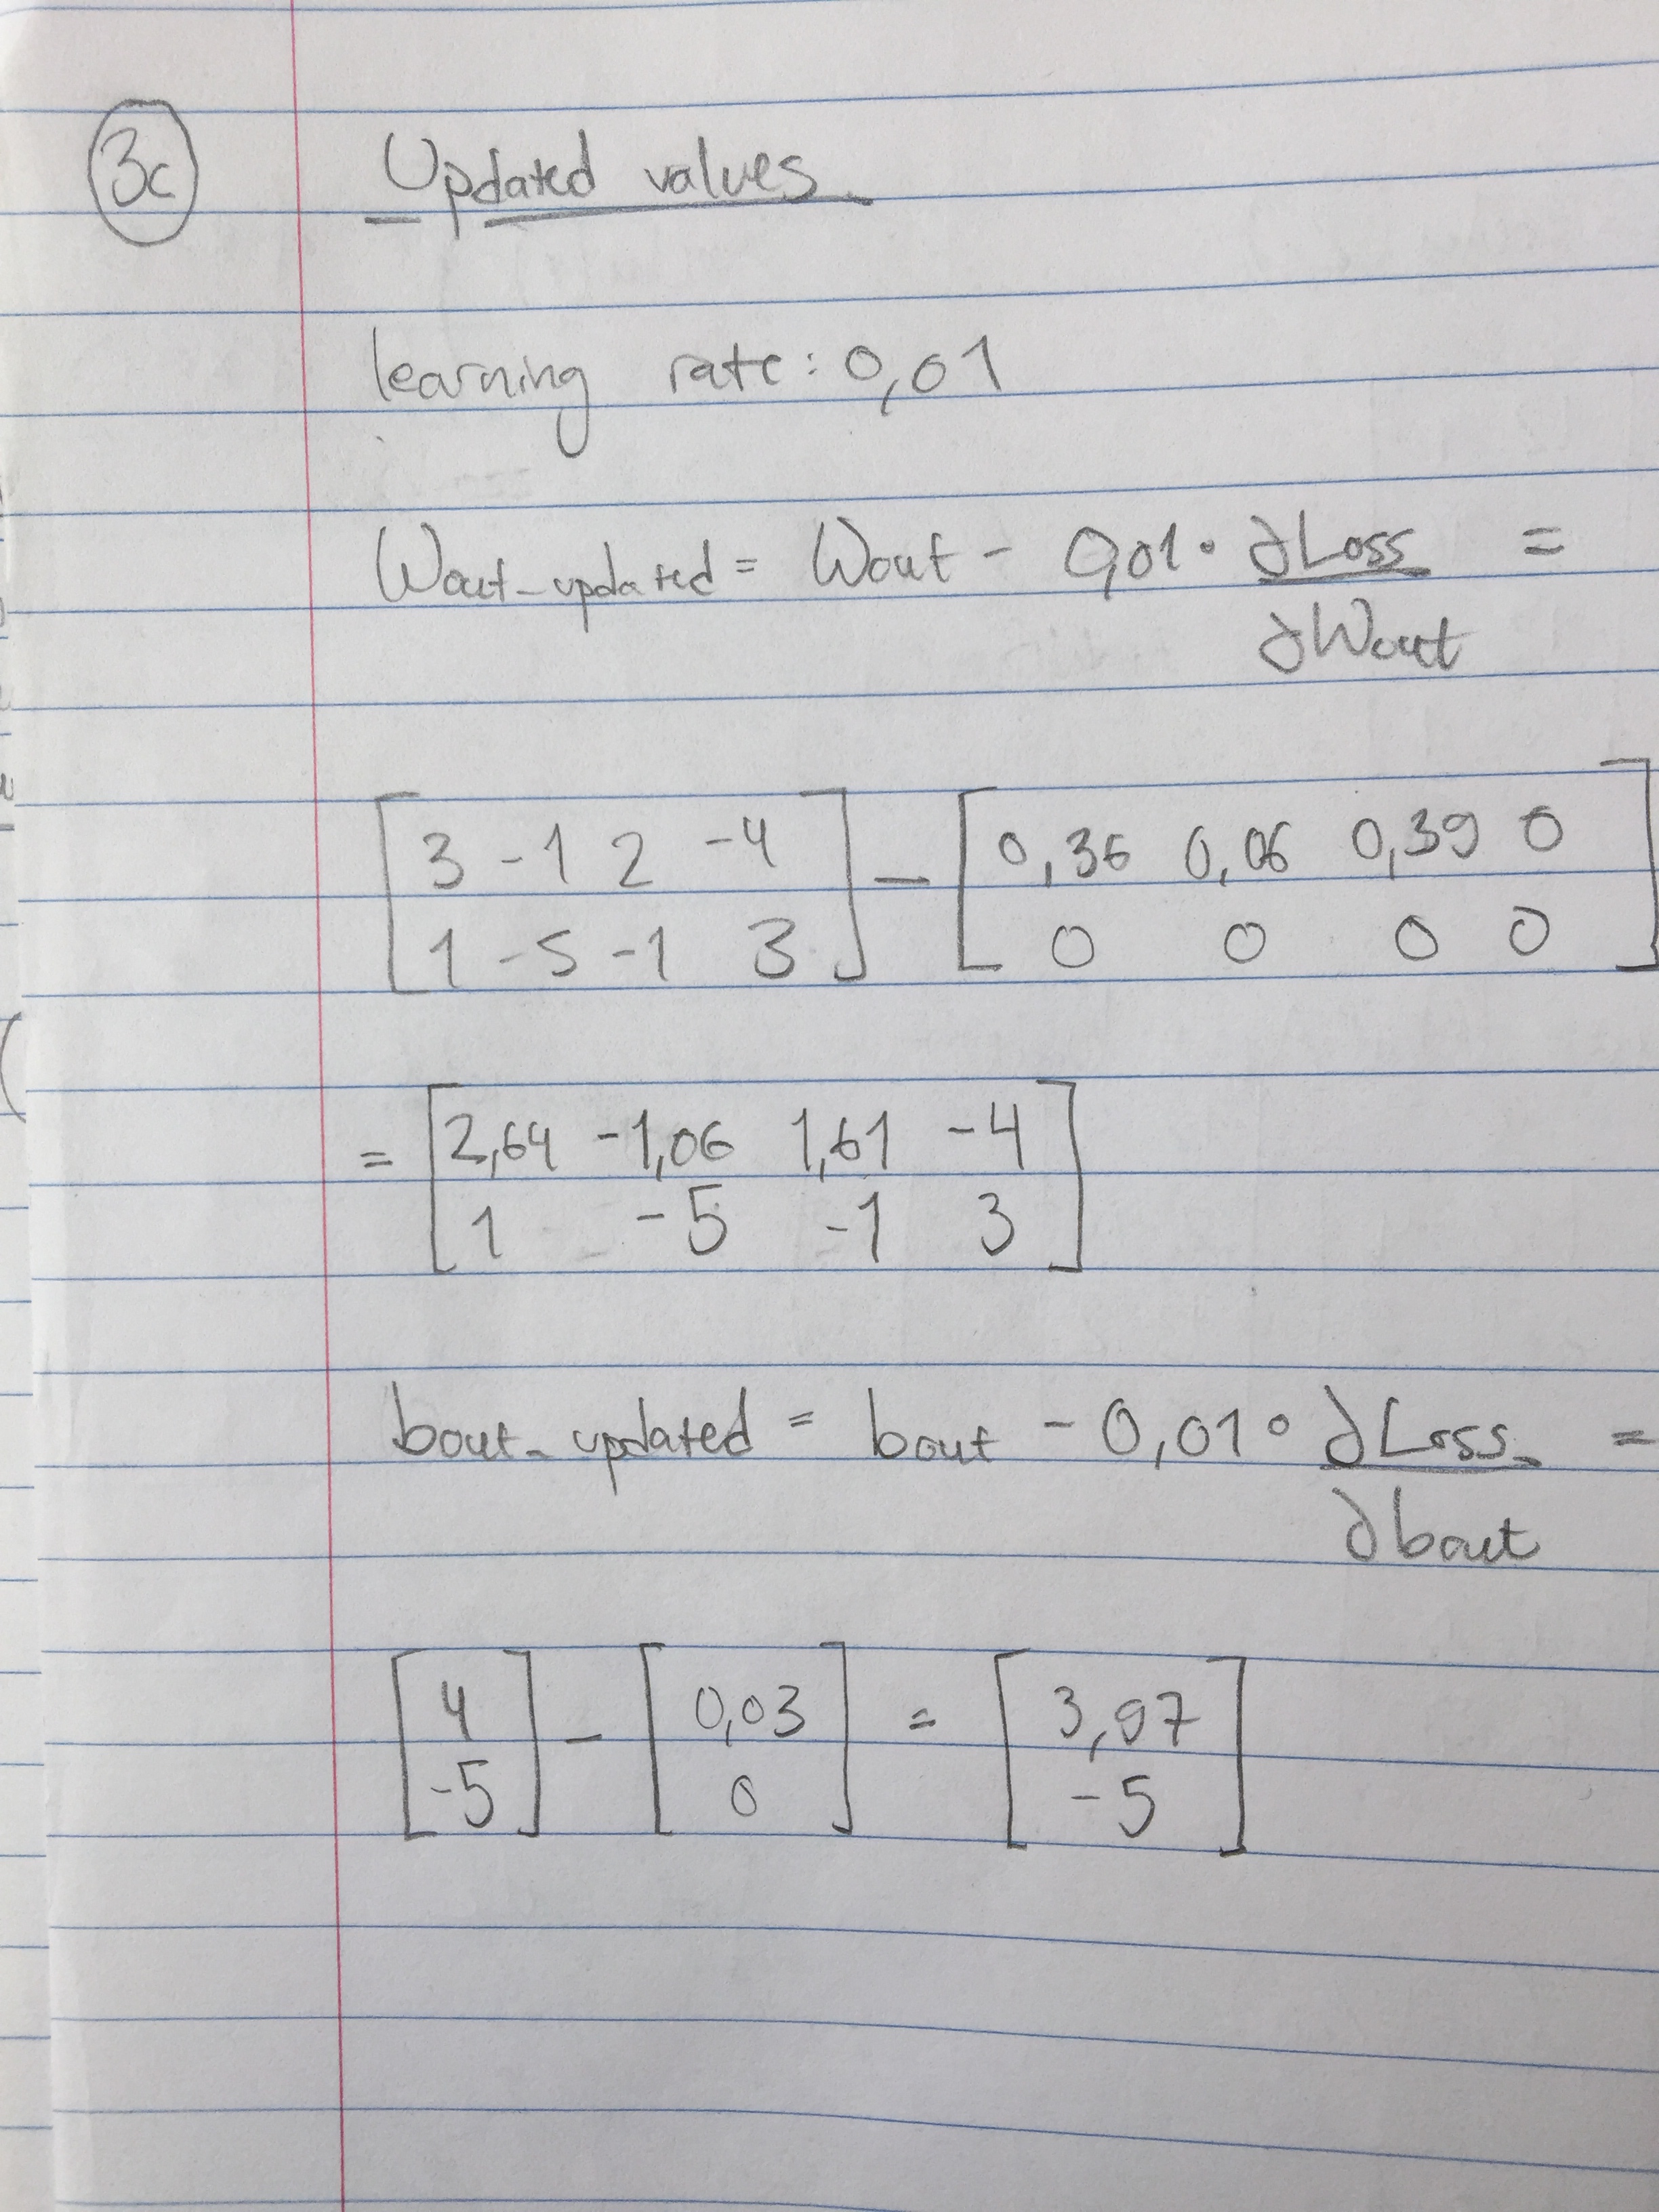 3c Updated values
learning rate: 0,01
Wout_updated = Wout - 0,01 · ∂Loss =
∂Wout
[3 -1 2 -4] - [0,36 0,06 0,39 0]
[1 -5 -1 3] [0 0 0 0]
= [2,64 -1,06 1,61 -4]
[1 -5 -1 3]
bout_updated = bout - 0,01 · ∂Loss =
∂bout
[4] - [0,03] = [3,97]
[-5] [0] [-5]